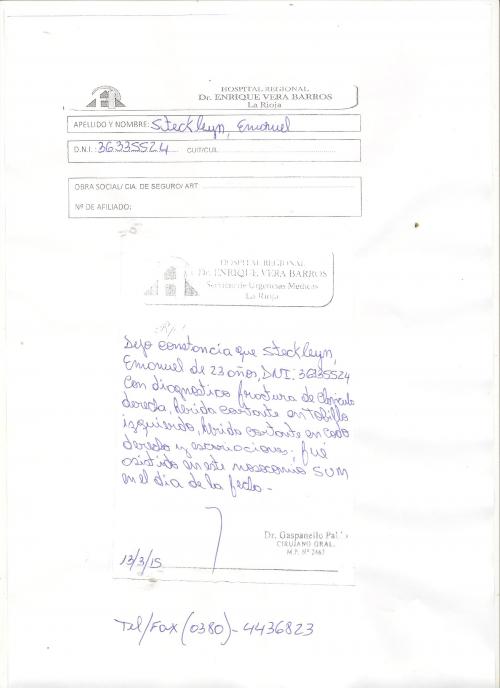 HOSPITAL REGIONAL
Dr. ENRIQUE VERA BARROS
La Rioja
APELLIDO Y NOMBRE: Steckleyn, Emanuel
D.N.I.: 36335524 CUIT/CUIL
OBRA SOCIAL/ CIA. DE SEGURO/ ART
Nº DE AFILIADO:
HOSPITAL REGIONAL
Dr. ENRIQUE VERA BARROS
Servicio de Urgencias Medicas
La Rioja
Rp/
Dejo constancia que Steckleyn,
Emanuel de 23 años, DNI: 36335524
Con diagnostico fractura de Clavicula
derecha, herida cortante en tobillo
izquierdo, herida cortante en codo
derecho y escoriaciones; fue
asistido en este nosocomio SUM
en el dia de la fecha -
Dr. Gaspanello
CIRUJANO GRAL.
M.P. Nº 2467
13/3/15
Tel/Fax (0380) - 4436823